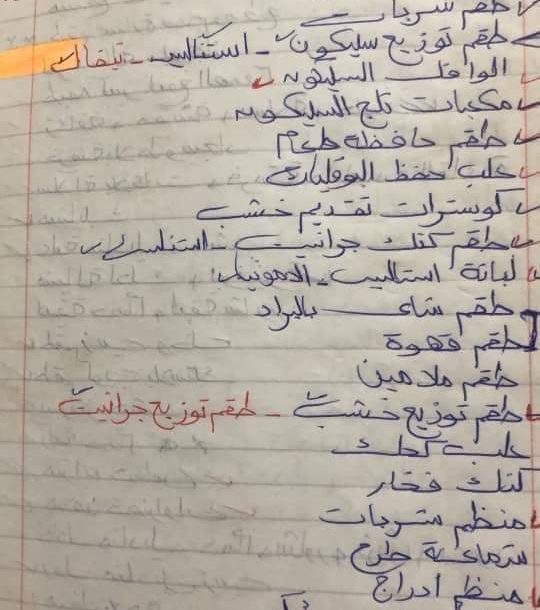 طقم شربات
طقم توزيع سليكون - استانلس - تيفال
الوافل السليكون
مكعبات تلج السليكون
طقم حافظة طعام
علب حفظ البقوليات
كوسترات تقديم خشب
طقم كنك جرانيت - استانلس
لبانة استالس -
طقم شاى بالبراد
طقم قهوة
طقم ملامين
طقم توزيع خشب - طقم توزيع جرانيت
علب كحك
كنك فخار
منظم شربات
شماعة طرح
منظم ادراج